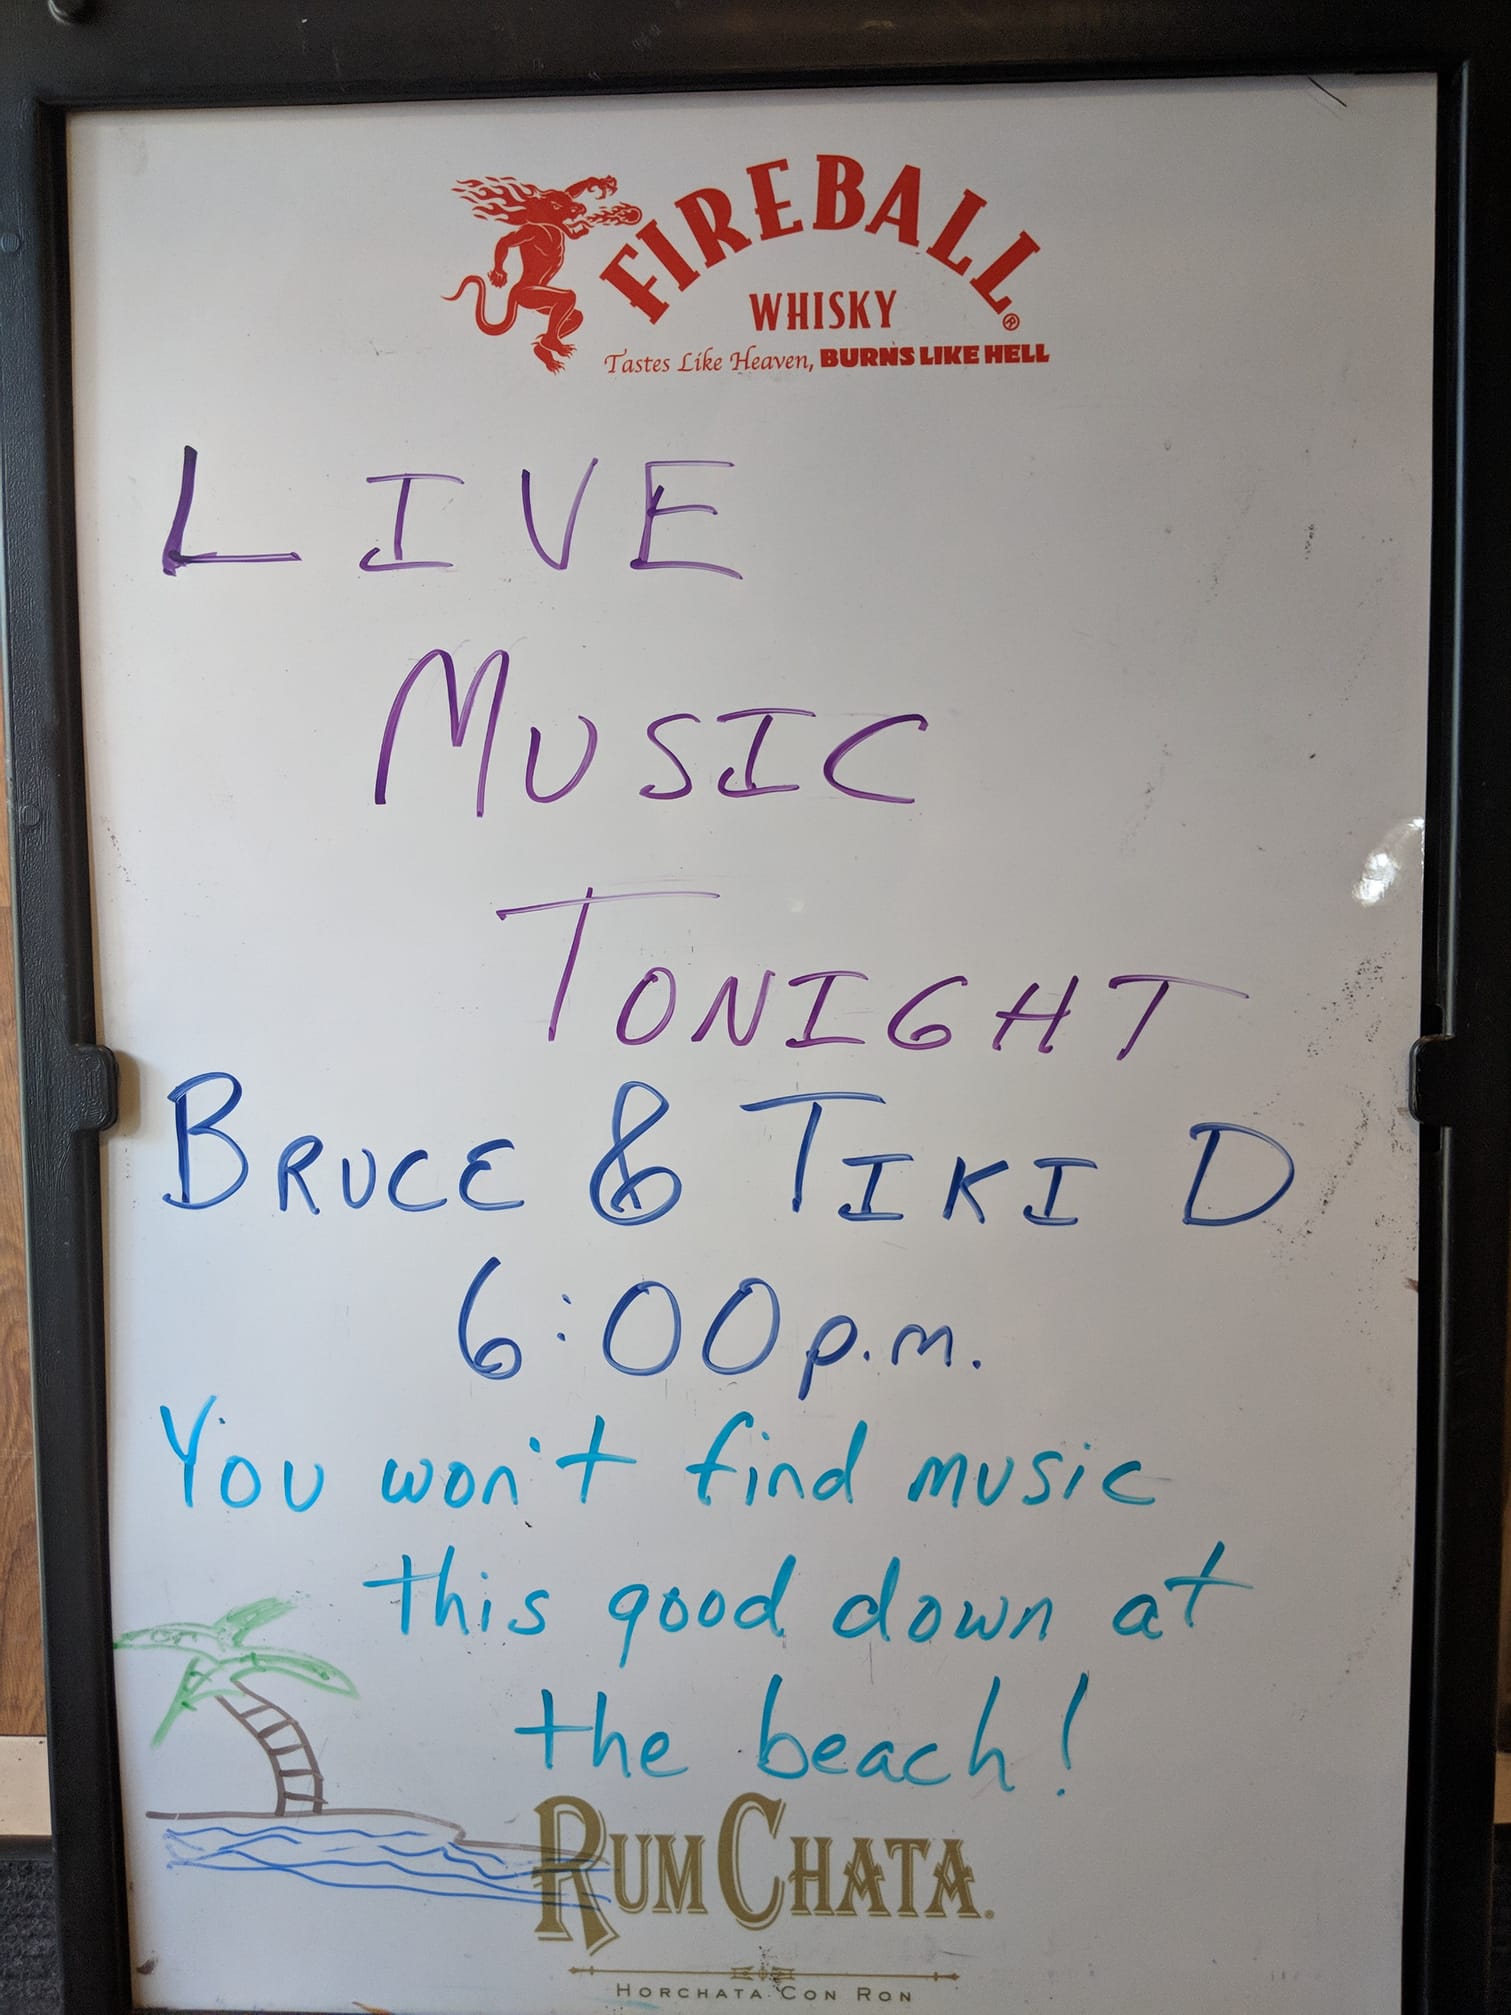 FIREBALL®
WHISKY
Tastes Like Heaven, BURNS LIKE HELL
LIVE
MUSIC
TONIGHT
BRUCE & TIKI D
6:00 p.m.
You won't find music
this good down at
the beach!
RUMCHATA®
HORCHATA CON RON